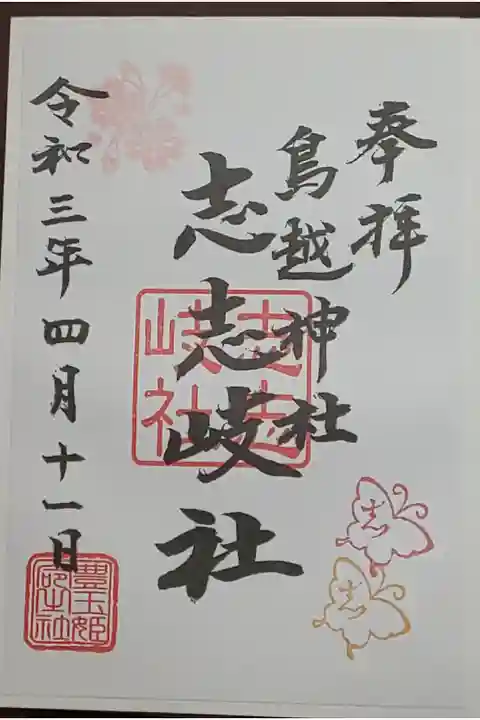 奉拝
鳥越神社
志志岐社
令和三年四月十一日
志志
岐社
豊玉姫
志
志